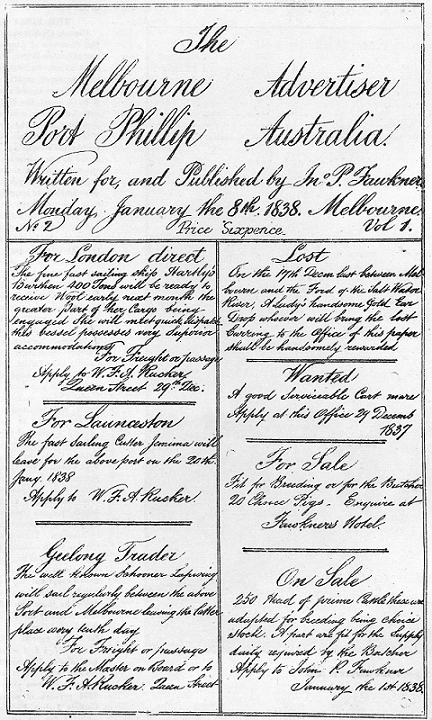 The
Melbourne Advertiser
Port Phillip Australia.
Written for, and Published by Jno P. Fawkner
Monday January the 8th. 1838. Melbourne.
No 2 Price Sixpence. Vol 1.
For London direct
The fine fast sailing ship
Burthen 400 Tons will be ready to
receive Wool early next month the
greater part of her Cargo being
engaged She will meet quick dispatch
this vessel possesses very Superior
accommodations
For Freight or passage
Apply to W. F. A. Rucker
Queen Street 29th Dec.
For Launceston
The fast sailing Cutter Jemima will
leave for the above port on the 20th.
Jany. 1838
Apply to W. F. A. Rucker
Geelong Trader
The well known Schooner Lapwing
will sail regularly between the above
Port and Melbourne leaving the latter
place every tenth day
For Freight or passage
Apply to the Master on Board or to
W. F. A. Rucker Queen Street
Lost
On the 17th Decm last between Mel
bourne and the Ford of the Salt Water
River, A Lady's handsome Gold Ear
Drop whoever will bring the lost
Earring to the Office of this paper
shall be handsomely rewarded
Wanted
A good Serviceable Cart mare
Apply at this Office 27 Decemb
1837
For Sale
Fit for Breeding or for the Butcher
20 Choice Pigs. Enquire at
Fawkners Hotel.
On Sale
250 Head of prime Cattle these are
adapted for breeding being choice
stock. A part are fit for the Supply
daily required by the Butcher
Apply to John P. Fawkner
January the 1st 1838.